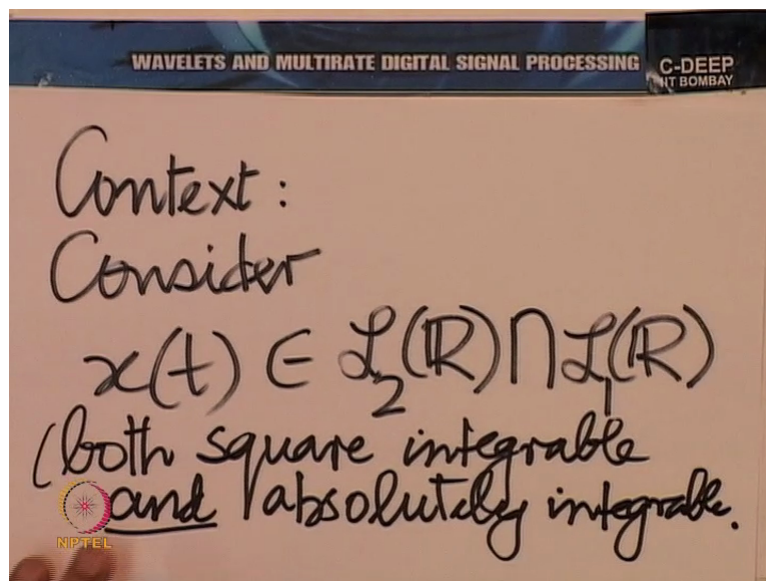 WAVELETS AND MULTIRATE DIGITAL SIGNAL PROCESSING
C-DEEP
IIT BOMBAY
Context:
Consider
x(t) ∈ ℒ₂(ℝ) ∩ ℒ₁(ℝ)
(both square integrable
and absolutely integrable.
NPTEL